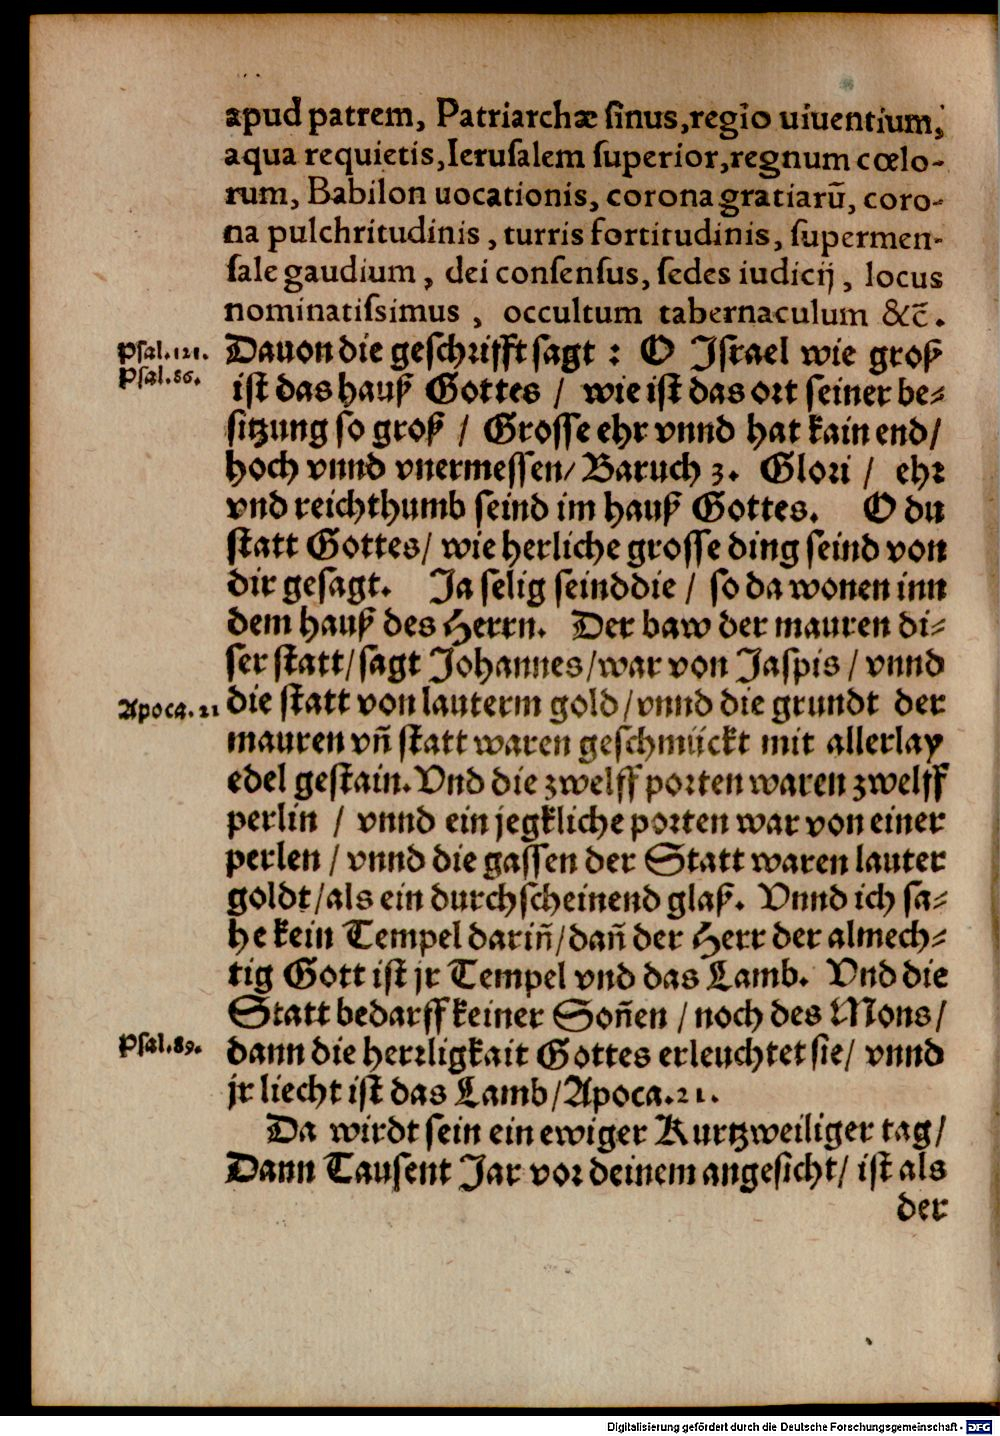 apud patrem, Patriarchæ ſinus, regio uiuentium,
aqua requietis, Ieruſalem ſuperior, regnum cœlo-
rum, Babilon uocationis, corona gratiarũ, coro-
na pulchritudinis, turris fortitudinis, ſupermen-
ſale gaudium, dei conſenſus, ſedes iudicij, locus
nominatiſsimus, occultum tabernaculum &c̃.
Psal.121. Dauon die geſchrifft ſagt: O Iſrael wie groß
Psal.86. iſt das hauß Gottes / wie iſt das ort ſeiner be⸗
ſitzung ſo groß / Groſſe ehr vnnd hat kain end/
hoch vnnd vnermeſſen/ Baruch 3. Glori / ehr
vnd reichthumb ſeind im hauß Gottes. O du
ſtatt Gottes/ wie herliche groſſe ding ſeind von
dir geſagt. Ja ſelig ſeind die / ſo da wonen inn
dem hauß des Herrn. Der baw der mauren di⸗
ſer ſtatt/ ſagt Johannes/ war von Jaſpis / vnnd
Apoca.21 die ſtatt von lauterm gold/ vnnd die grundt der
mauren vñ ſtatt waren geſchmückt mit allerlay
edel geſtain. Vnd die zwelff porten waren zwelff
perlin / vnnd ein jegkliche porten war von einer
perlen / vnnd die gaſſen der Statt waren lauter
goldt/ als ein durchſcheinend glaß. Vnnd ich ſa⸗
he kein Tempel dariñ/ dañ der Herr der almech⸗
tig Gott iſt jr Tempel vnd das Lamb. Vnd die
Statt bedarff keiner Soñen / noch des Mons/
Psal.89. dann die herrligkait Gottes erleuchtet ſie/ vnnd
jr liecht iſt das Lamb/ Apoca.21.
Da wirdt ſein ein ewiger Kurtzweiliger tag/
Dann Tauſent Jar vor deinem angeſicht/ iſt als
der
Digitalisierung gefördert durch die Deutsche Forschungsgemeinschaft - DFG